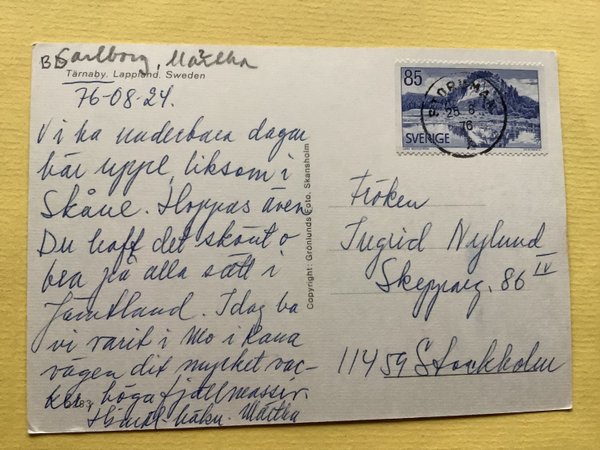 Carlborg, Märtha
Tärnaby. Lappland. Sweden
76-08-24.
Vi ha underbara dagar
här uppe, liksom i
Skåne. Hoppas även
Du haft det skönt o
bra på alla sätt i
Jämtland. Idag ha
vi varit i Mo i Rana
vägen dit mycket vac-
ker, höga fjällmassiv.
Märtha
Copyright: Grönlunds Foto, Skansholm
85
SVERIGE
STORUMAN
25 8
76
Fröken
Ingrid Nylund
Skepparg. 86 IV
11459 Stockholm